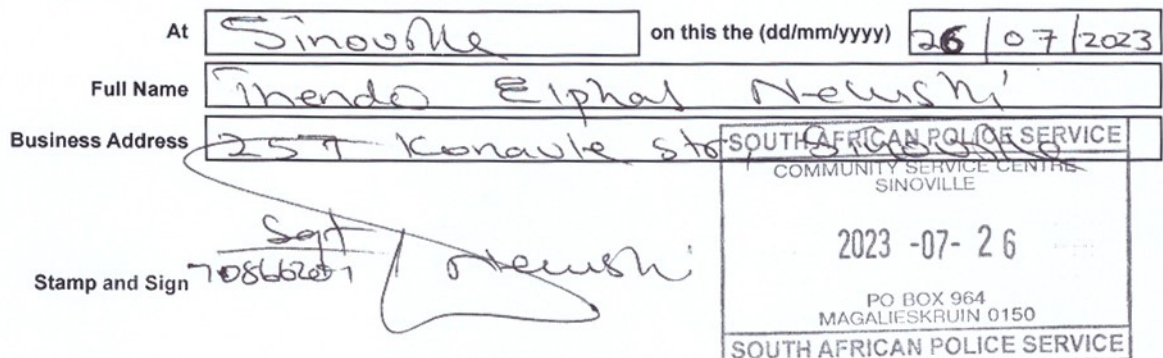 At Sinoville on this the (dd/mm/yyyy) 26/07/2023
Full Name Thendo Elphas
Business Address 257 str, Sinoville
SOUTH AFRICAN POLICE SERVICE
COMMUNITY SERVICE CENTRE
SINOVILLE
2023 -07- 26
PO BOX 964
MAGALIESKRUIN 0150
SOUTH AFRICAN POLICE SERVICE
Sgt
Stamp and Sign